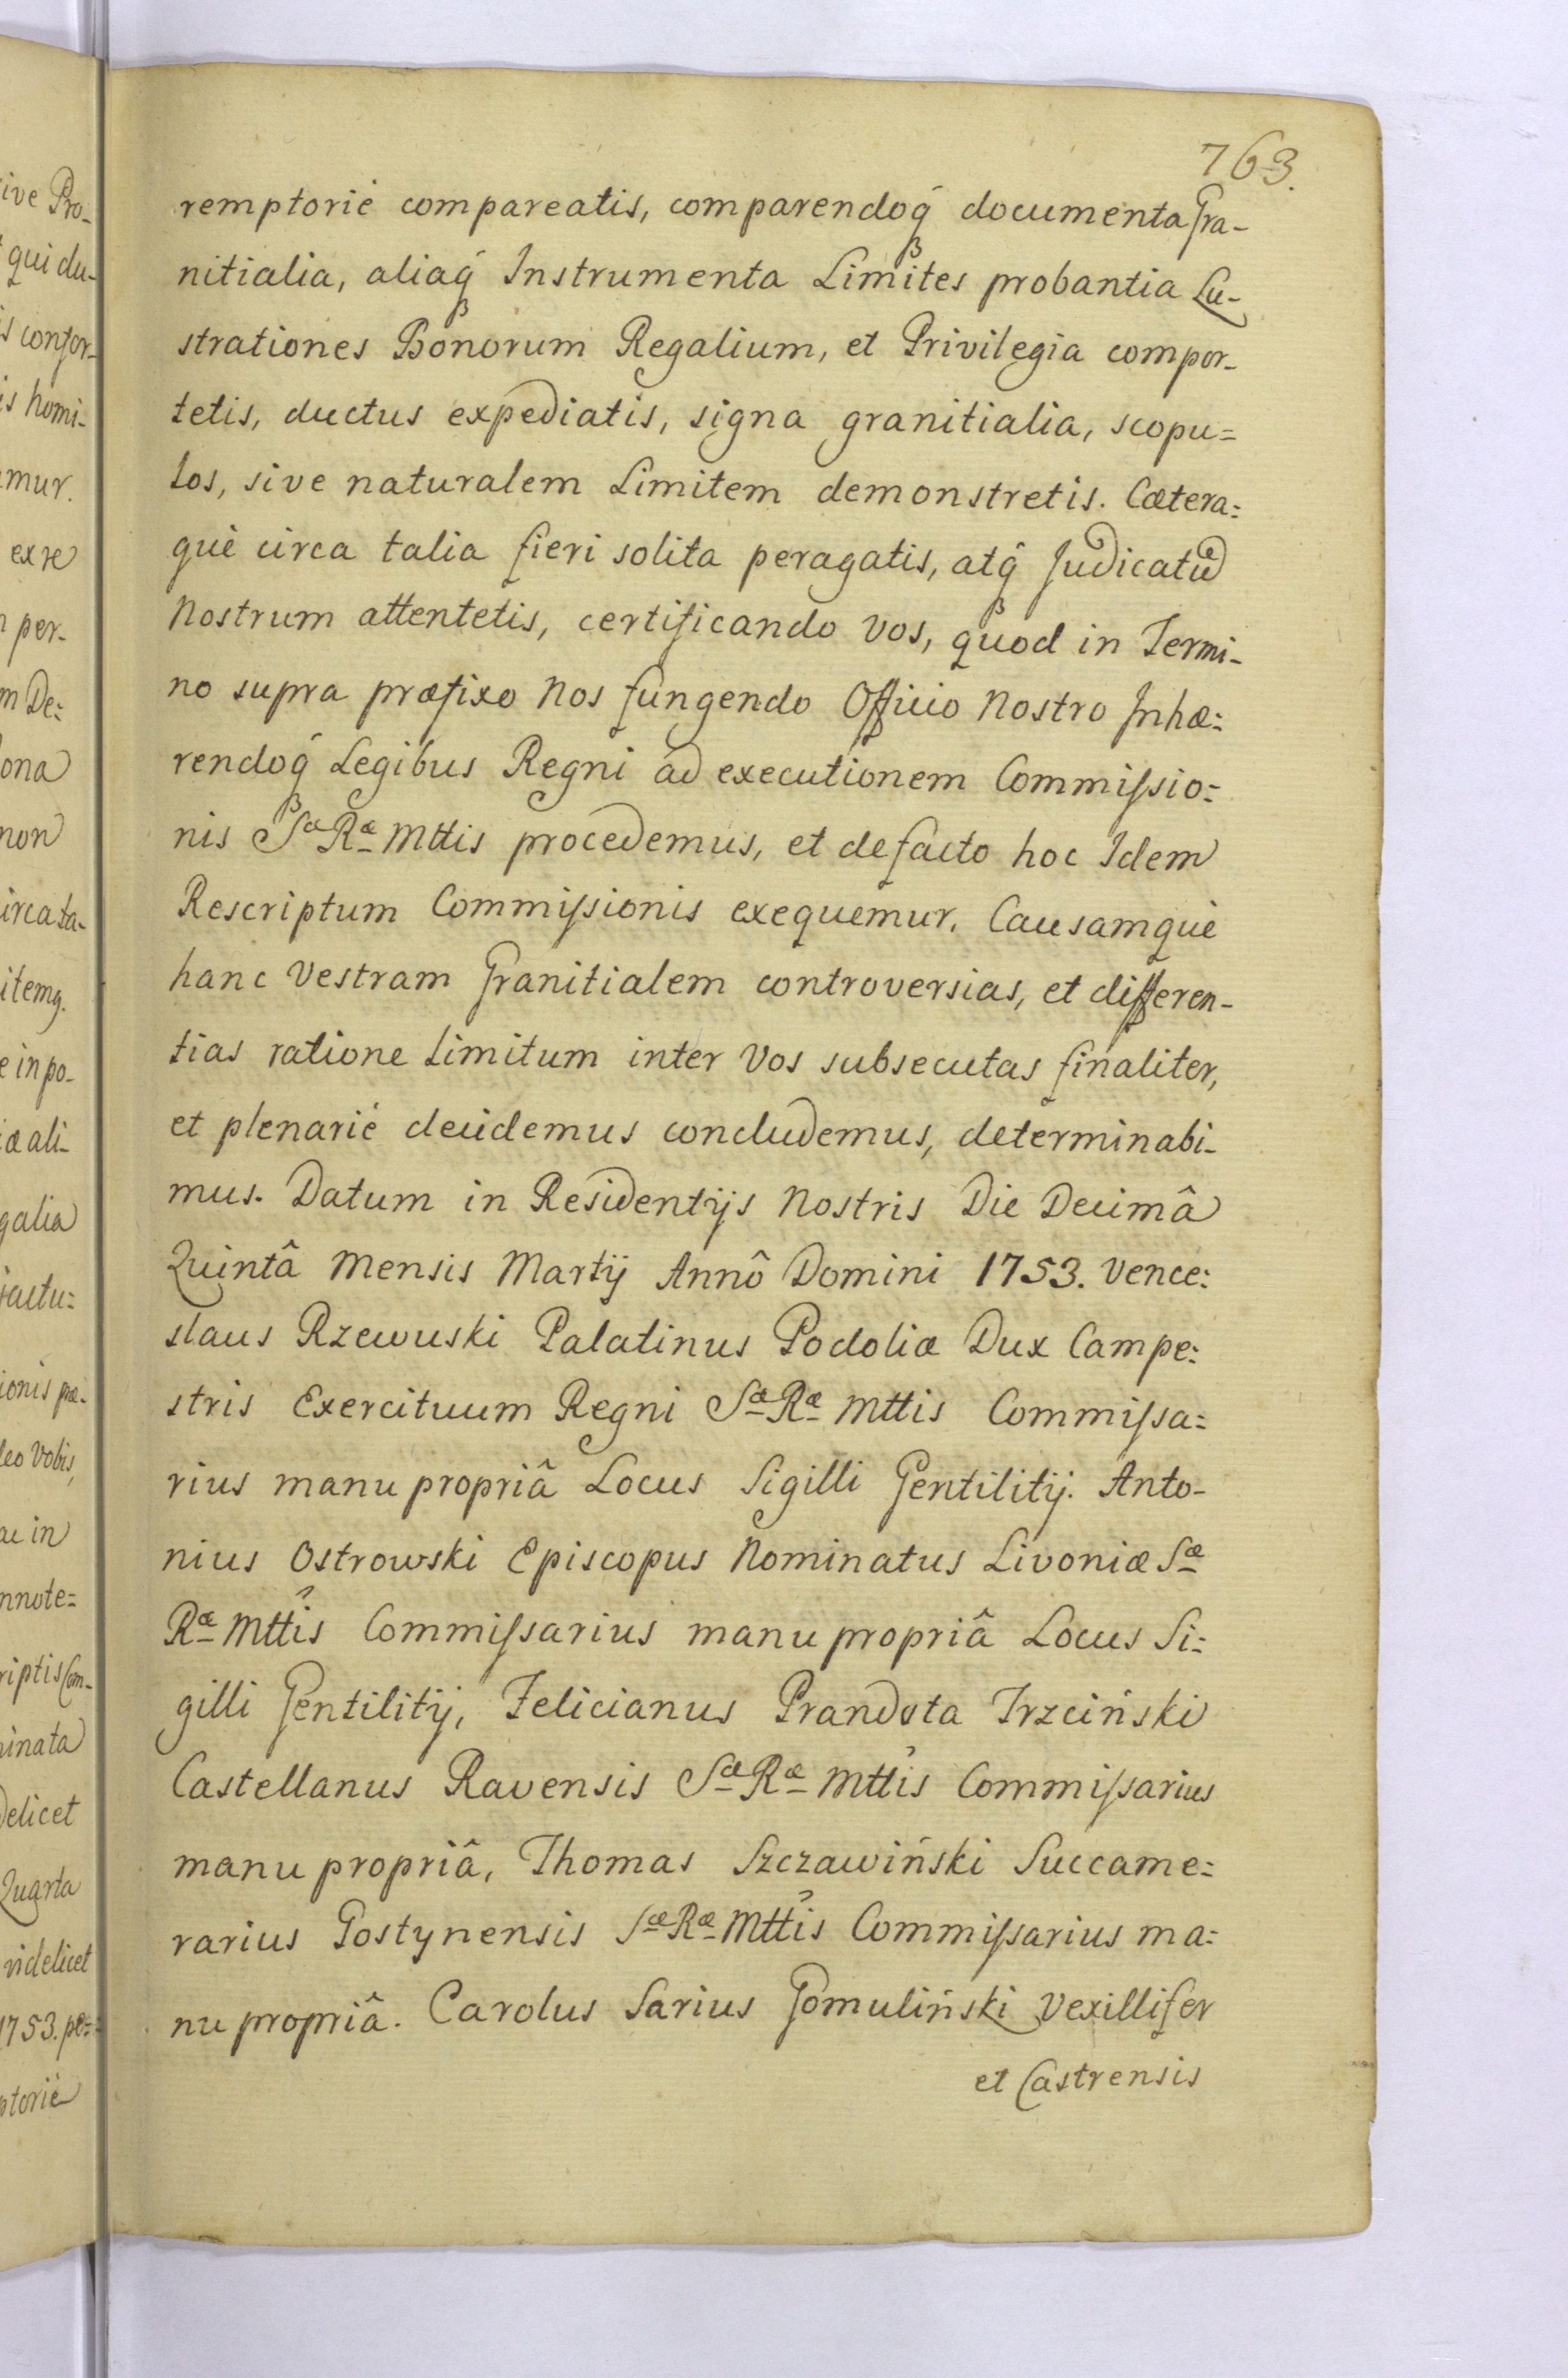 763.
remptorié compareatis, comparendoq́ documenta Gra-
nitialia, aliaq́ Instrumenta Limites probantia Lu-
strationes Bonorum Regalium, et Privilegia compor-
tetis, ductus expediatis, signa granitialia, scopu=
los, sive naturalem Limitem demonstretis. Cætera=
què circa talia fieri solita peragatis, atq̂ Judicatū
Nostrum attentetis, certificando Vos, quod in Termi-
no supra præfixo Nos fungendo Officio Nostro Inhæ=
rendoq́ Legibus Regni ád executionem Commissio=
nis Sæ Ræ Mttis procedemus, et defacto hoc Idem
Rescriptum Commissionis exequemur. Causamquè
hanc Vestram Granitialem controversias, et differen-
tias ratione Limitum inter Vos subsecutas finaliter,
et plenarié decidemus concludemus, determinabi-
mus. Datum in Residentijs Nostris Die Decimâ
Quintâ Mensis Martij Annô Domini 1753. Vence=
slaus Rzewuski Palatinus Podoliæ Dux Campe=
stris Exercituum Regni Sæ Ræ Mttis Commissa=
rius manu propriâ Locus Sigilli Gentilitij. Anto-
nius Ostrowski Episcopus Nominatus Livoniæ Sæ
Ræ Mttis Commissarius manu propriâ Locus Si=
gilli Gentilitij, Felicianus Prandota Trzciński
Castellanus Ravensis Sæ Ræ Mttis Commissarius
manu propriâ, Thomas Szczawiński Succame=
rarius Gostynensis Sæ Ræ Mttis Commissarius ma=
nu propriâ. Carolus Sarius Gomuliński Vexillifer
et Castrensis